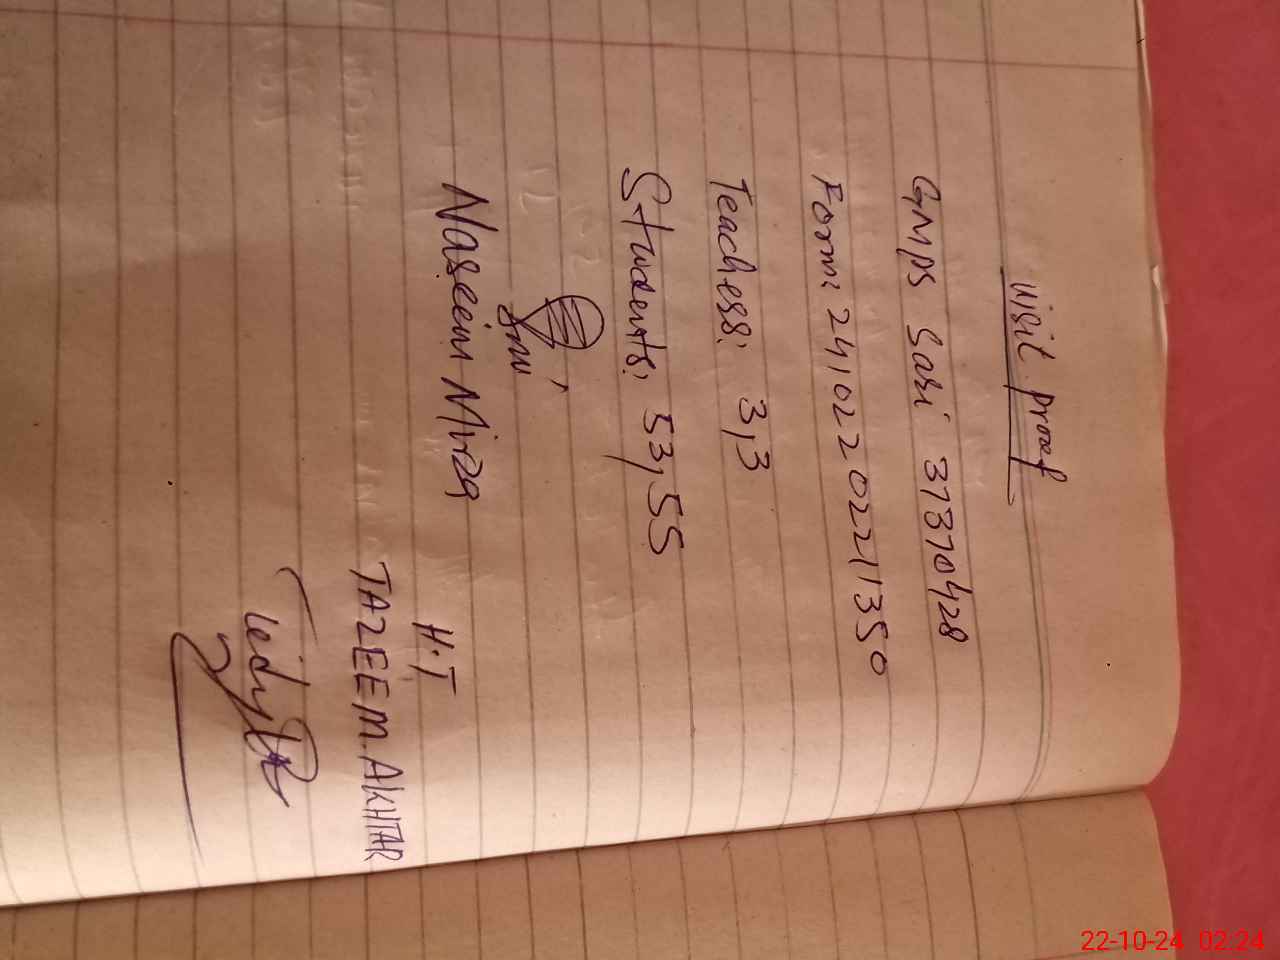 visit proof
GMPS Sari 37370428
Form: 24102202211350
Teachess: 3,3
Students: 53,55
Naseem Mirza
H.T
TAZEEM.AKHTAR
22-10-24 02:24